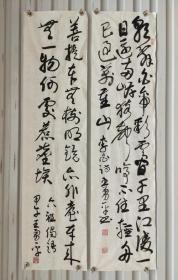 朝辞白帝彩雲间千里江陵一
日還两岸猿声啼不住轻舟
已过萬重山 李白诗
菩提本无树明镜亦非台本来
无一物何處惹塵埃 六祖偈语
甲午王